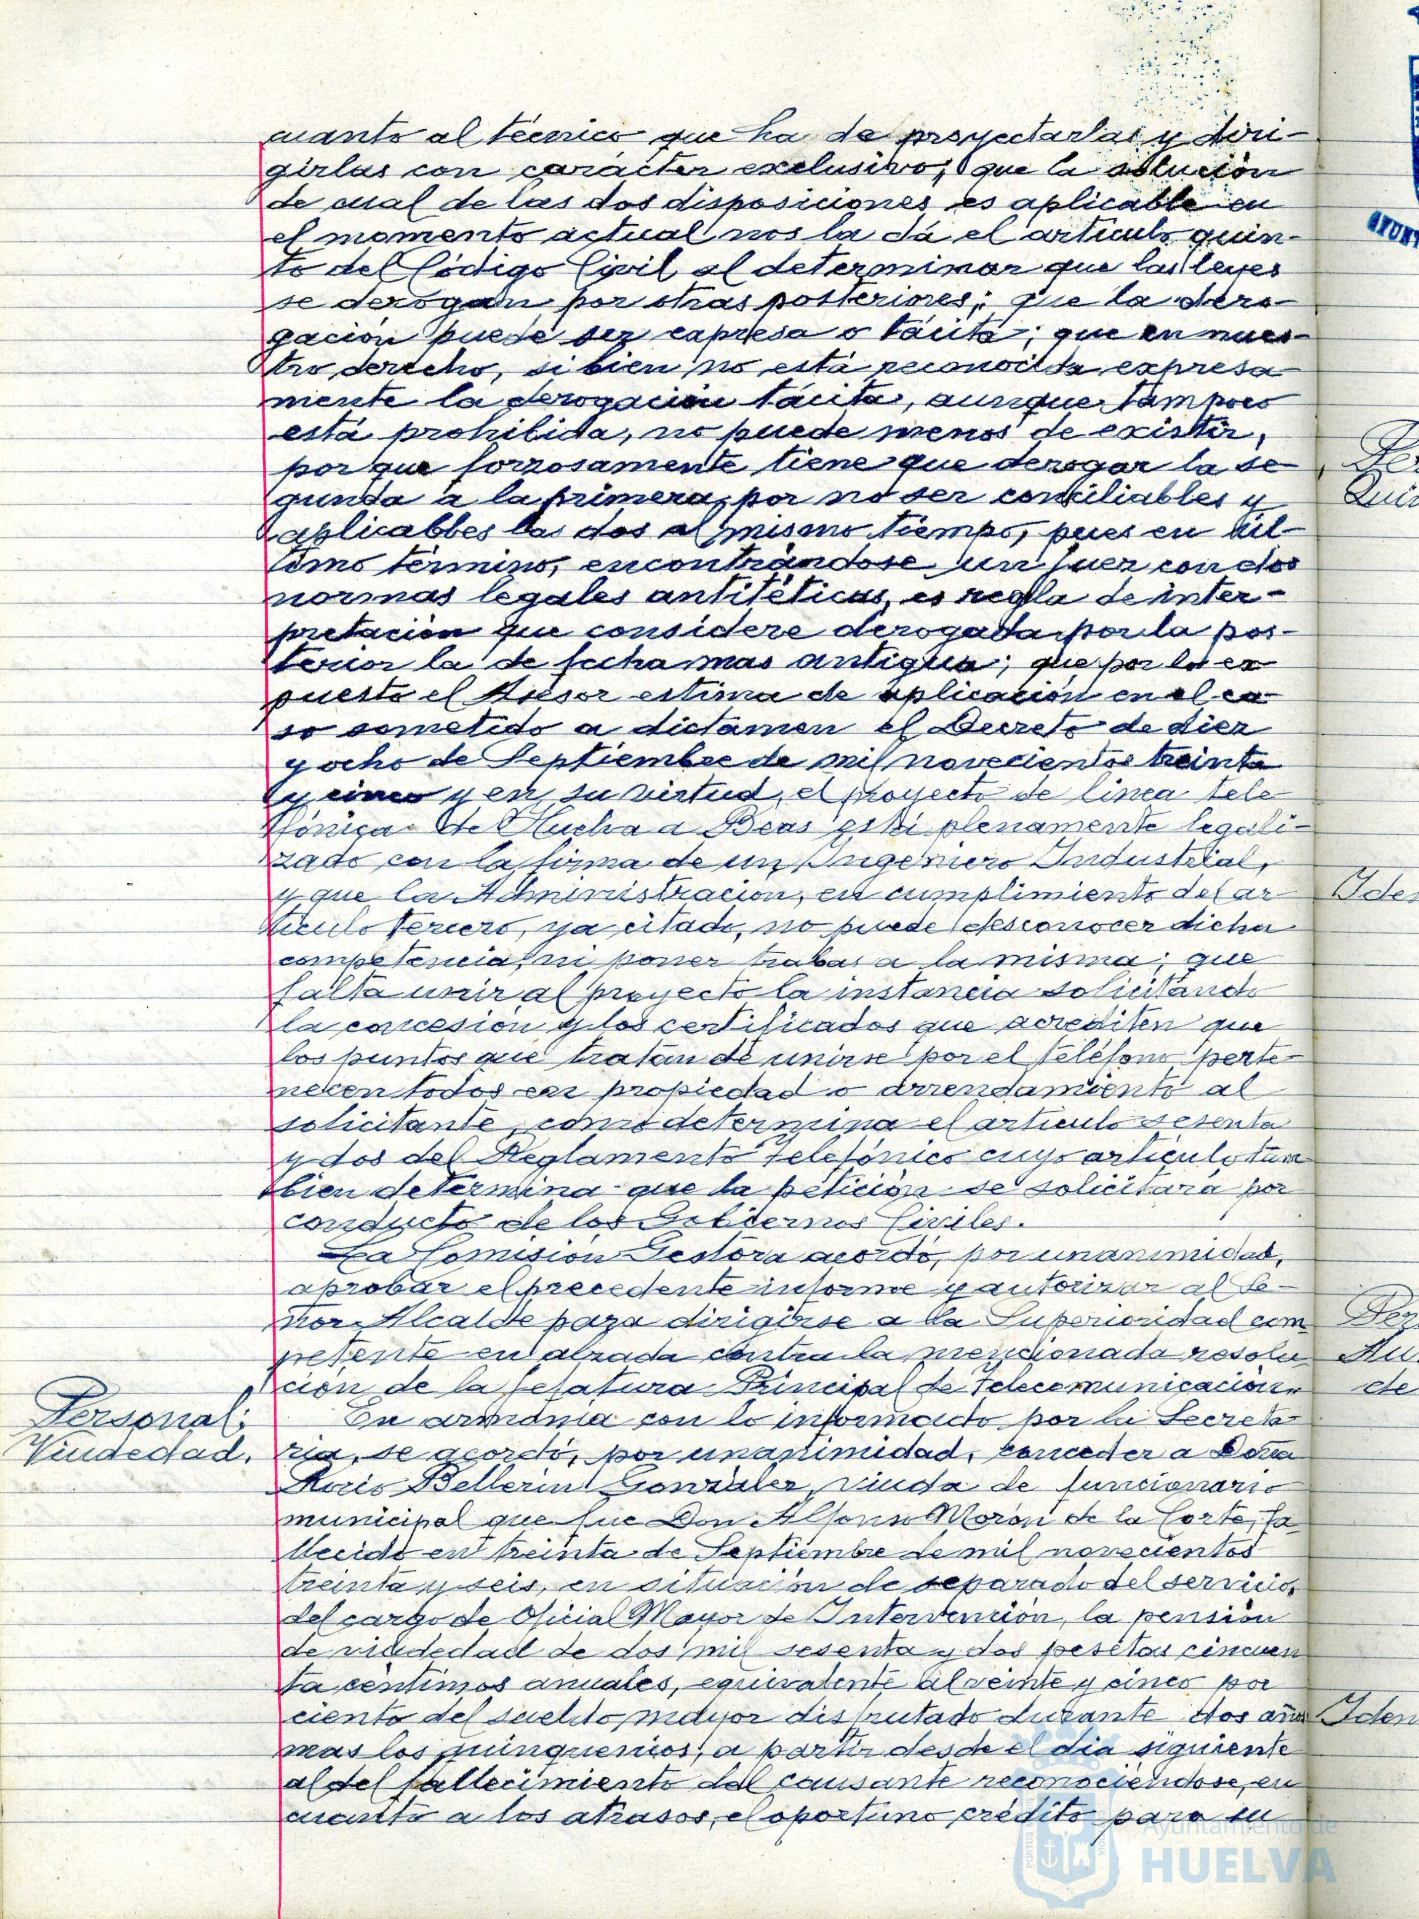 cuanto al técnico que ha de proyectarlas y diri-
girlas con carácter exclusivo; que la solución
de cual de las dos disposiciones es aplicable en
el momento actual nos la dá el artículo quin-
to del Código Civil al determinar que las leyes
se derogan por otras posteriores; que la dero-
gación puede ser expresa o tácita; que en nues-
tro derecho, si bien no está reconocida expresa
mente la derogación tácita, aunque tampoco
está prohibida, no puede menos de existir,
porque forzosamente tiene que derogar la se-
gunda a la primera, por no ser conciliables y
aplicabbles las dos al mismo tiempo, pues en últ-
timo término, encontrándose un juez con dos
normas legales antitéticas, es regla de inter-
pretación que considere derogada por la pos-
terior la de fecha mas antigua; que por lo ex
puesto el Asesor estima de aplicación en el ca-
so sometido a dictamen el Decreto de diez
y ocho de Septiembre de mil novecientos treinta
y cinco y en su virtud, el proyecto de línea tele
fónica de Huelva a Beas está plenamente legali-
zado con la firma de un Ingeniero Industrial,
y que la Administración, en cumplimiento del ar
tículo tercero, ya citado, no puede desconocer dicha
competencia, ni poner trabas a la misma; que
falta unir al proyecto la instancia solicitando
la concesión y los certificados que acrediten que
los puntos que tratan de unirse por el teléfono perte-
necen todos en propiedad o arrendamiento al
solicitante, como determina el artículo sesenta
y dos del Reglamento Telefónico cuyo artículo tam
bien determina que la petición se solicitará por
conducto de los Gobiernos Civiles.
La Comisión Gestora acordó, por unanimidad,
aprobar el precedente informe y autorizar al Se-
ñor Alcalde para dirigirse a la Superioridad com
petente en alzada contra la mencionada resolu
ción de la Jefatura Principal de Telecomunicación.
Personal:
Viudedad.
En armonía con lo informado por la Secreta-
ria, se acordó, por unanimidad, conceder a Doña
Rocio Bellerin González, viuda de funcionario
municipal que fue Don Alfonso Morón de la Corte, fa
llecido en treinta de Septiembre de mil novecientos
treinta y seis, en situación de separado del servicio,
del cargo de Oficial Mayor de Intervención, la pensión
de viudedad de dos mil sesenta y dos pesetas cincuen
ta céntimos anuales, equivalente al veinte y cinco por
ciento del sueldo mayor disfrutado durante dos años
mas los quinquenios, a partir desde el día siguiente
al del fallecimiento del causante reconociéndose, en
cuanto a los atrasos, el oportuno crédito para su
Ayuntamiento de
HUELVA